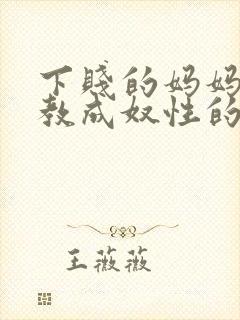 下贱的妈妈
教成奴性的
王薇薇